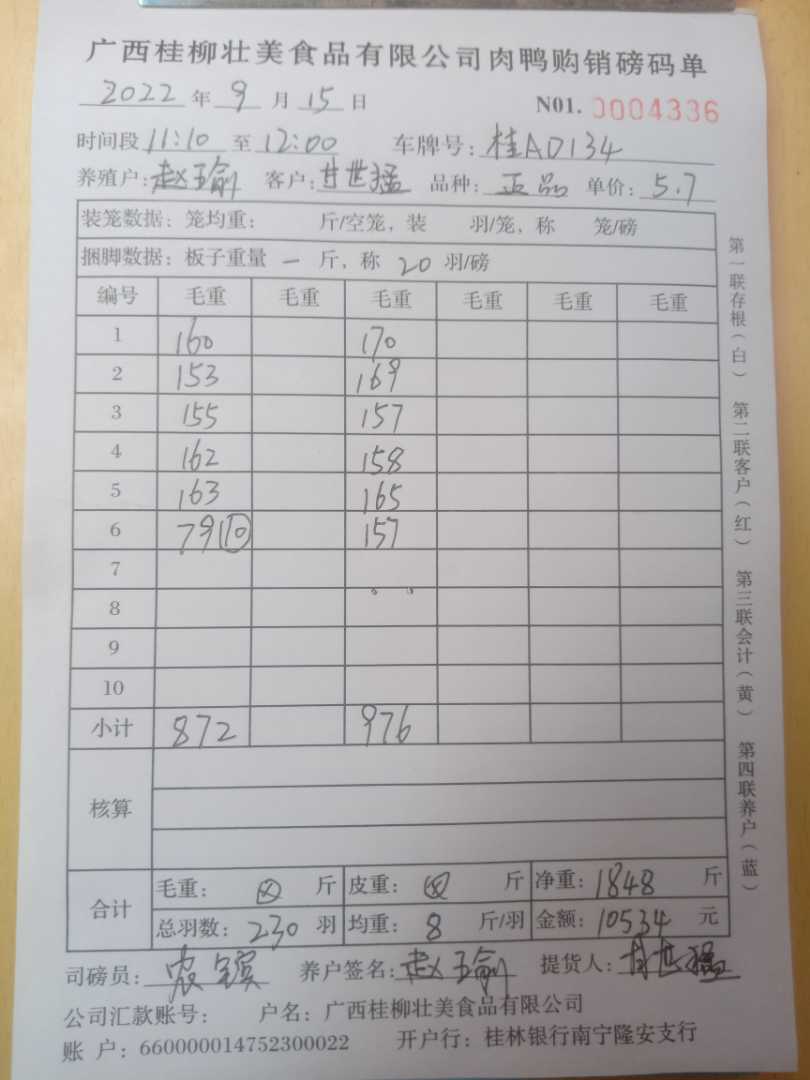 广西桂柳壮美食品有限公司肉鸭购销磅码单
2022 年 9 月 15 日 N01. 0004336
时间段 11:10 至 12:00 车牌号: 桂AD134
养殖户: 赵玉瑜 客户: 甘世猛 品种: 正品 单价: 5.7
装笼数据: 笼均重: 斤/空笼, 装 羽/笼, 称 笼/磅
捆脚数据: 板子重量 一 斤, 称 20 羽/磅
编号 毛重 毛重 毛重 毛重 毛重 毛重
1 160 170
2 153 169
3 155 157
4 162 158
5 163 165
6 79 10 157
7
8
9
10
小计 872 976
核算
合计
毛重: 斤 皮重: 斤 净重: 1848 斤
总羽数: 230 羽 均重: 8 斤/羽 金额: 10534 元
司磅员: 养户签名: 赵玉瑜 提货人: 甘世猛
公司汇款账号: 户名: 广西桂柳壮美食品有限公司
账 户: 660000014752300022 开户行: 桂林银行南宁隆安支行
第一联存根(白) 第二联客户(红) 第三联会计(黄) 第四联养户(蓝)